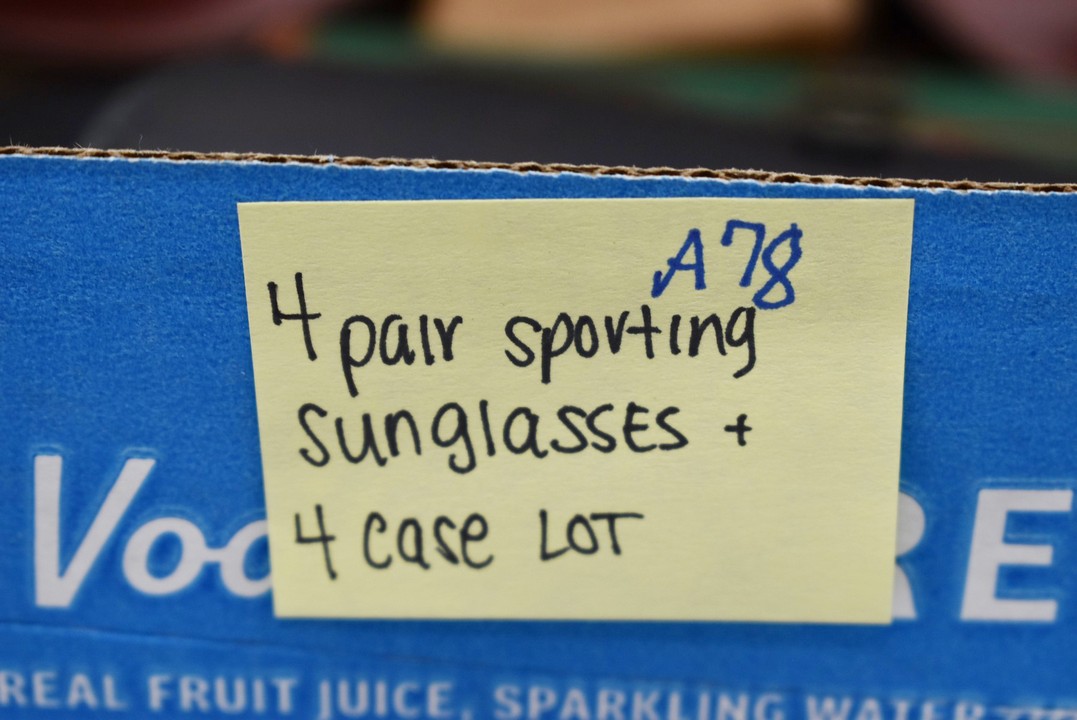 A78
4 pair sporting
sunglasses +
4 case LOT
RE
REAL FRUIT JUICE, SPARKLING WATER